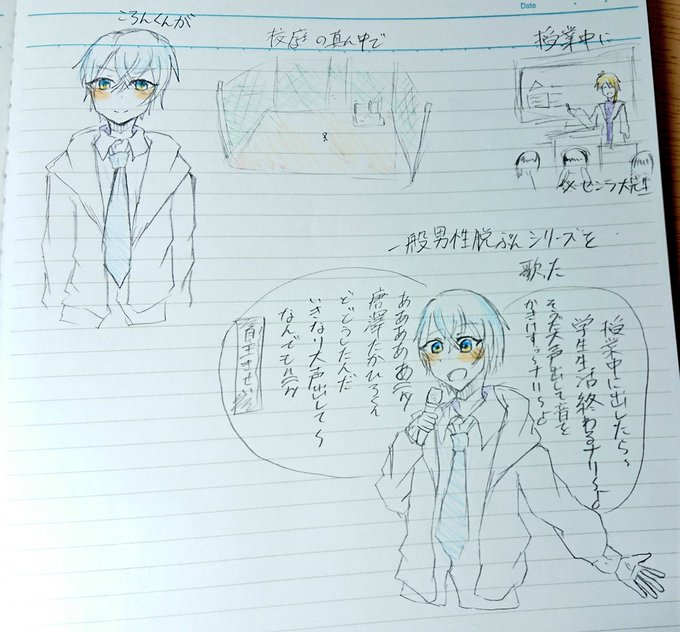 Date
ころんくんが
校庭の真ん中で
授業中に
※センラ先生
一般男性脱ぷんシリーズを
歌た
授業中に出したら〜
学生生活終わるナリ〜よ
そうだ大声出して音を
かきけすっナリ〜よ
唐澤たかひろくん
どどうしたんだ
いきなり大声出して〜
なんでも